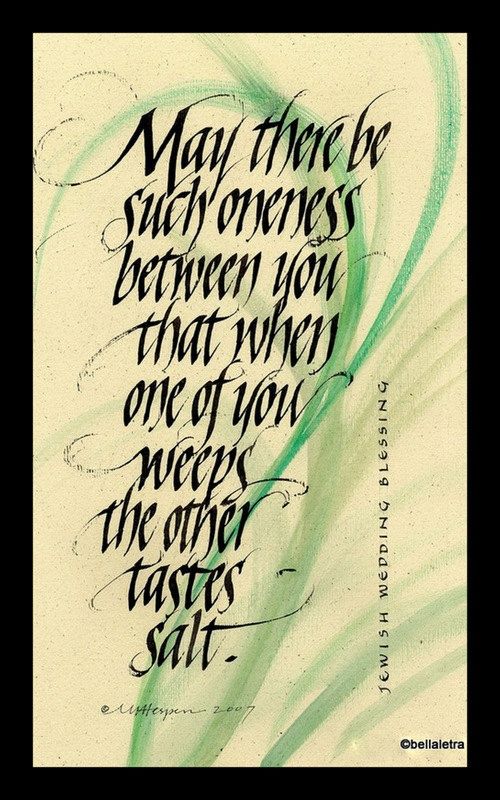 May there be
such oneness
between you
that when
one of you
weeps
the other
tastes
salt.
JEWISH WEDDING BLESSING
2007
©bellaletra